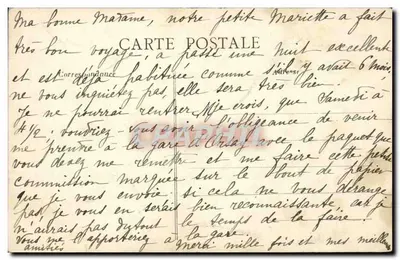 Ma bonne Madame, notre petite Mariette a fait
très bon voyage, a passé une nuit excellente
CARTE POSTALE
et est déjà habituée comme s'il y avait 6 mois
Correspondance
ne vous inquiétez pas, elle sera très bien.
Je ne pourrai rentrer, je crois, que Samedi à
4 h/2. voudriez-vous avoir l'obligeance de venir
me prendre à la gare d'Orsay avec le paquet que
vous devez me remettre et me faire cette petite
commission marquée sur le bout de papier
que je vous envoie si cela ne vous dérange
pas, je vous en serais bien reconnaissante car je
n'aurais pas du tout le temps de la faire.
Vous me l'apporteriez à la gare.
Merci mille fois et mes meilleures
amitiés